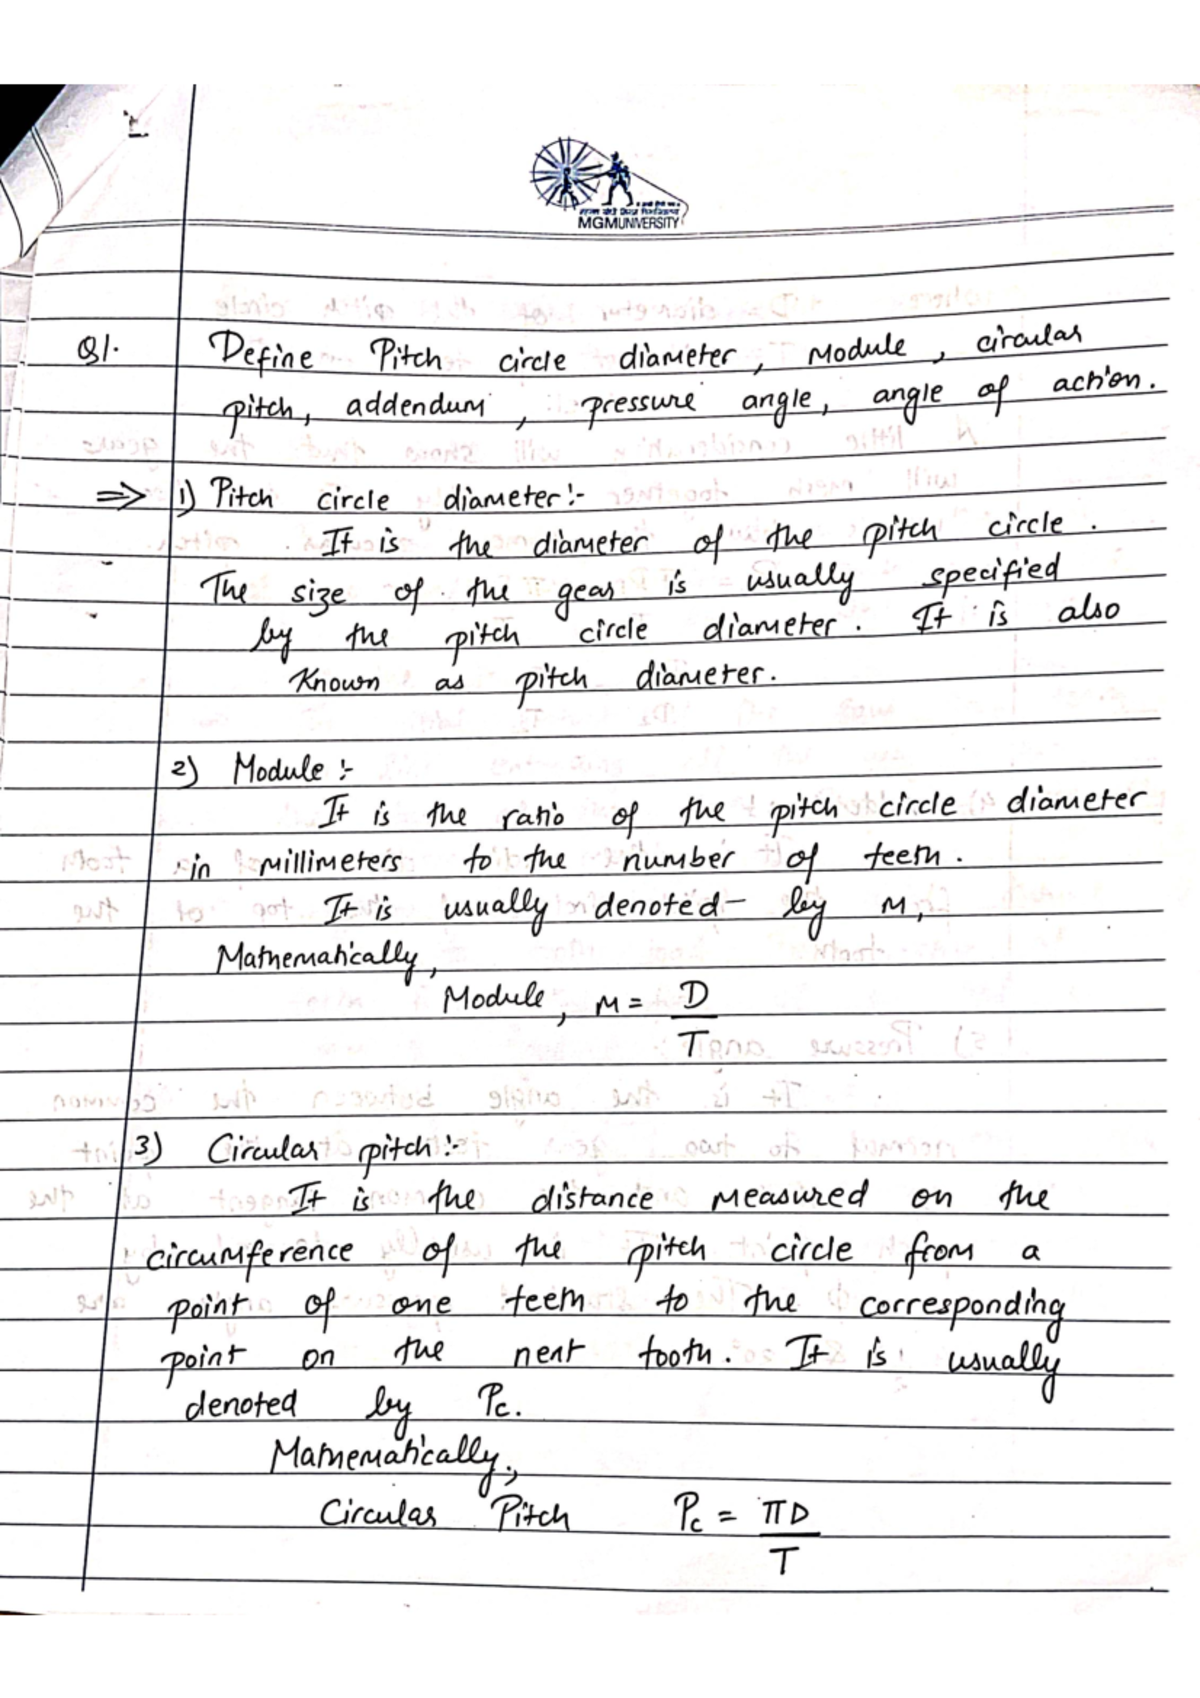 MGMUNIVERSITY
Q1. Define Pitch circle diameter, Module, circular
pitch, addendum, pressure angle, angle of action.
=> 1) Pitch circle diameter:-
It is the diameter of the pitch circle.
The size of the gear is usually specified
by the pitch circle diameter. It is also
Known as pitch diameter.
2) Module :-
It is the ratio of the pitch circle diameter
in millimeters to the number of teeth.
It is usually denoted- by M,
Mathematically,
Module, M = D
T
3) Circular pitch:-
It is the distance measured on the
circumference of the pitch circle from a
point of one teeth to the corresponding
point on the next tooth. It is usually
denoted by Pc.
Mathematically,
Circular Pitch Pc = πD
T